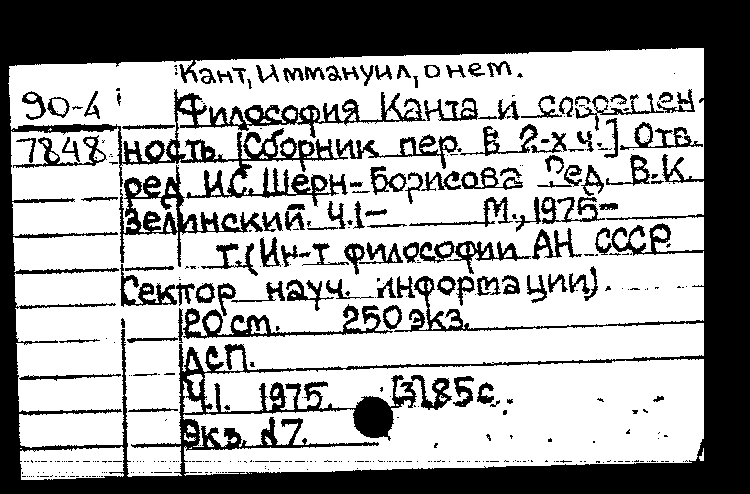 Кант, Иммануил, о нем.
90-4 Философия Канта и современ-
7848 ность. [Сборник пер. В 2-х ч.]. Отв.
ред. И.С. Шерн-Борисова Ред. В.К.
Зелинский. Ч.1— М., 1975—
т. (Ин-т философии АН СССР
Сектор науч. информации).
20 см. 250 экз.
ДСП.
Ч.1. 1975. [3],85 с.
Экз. №7.